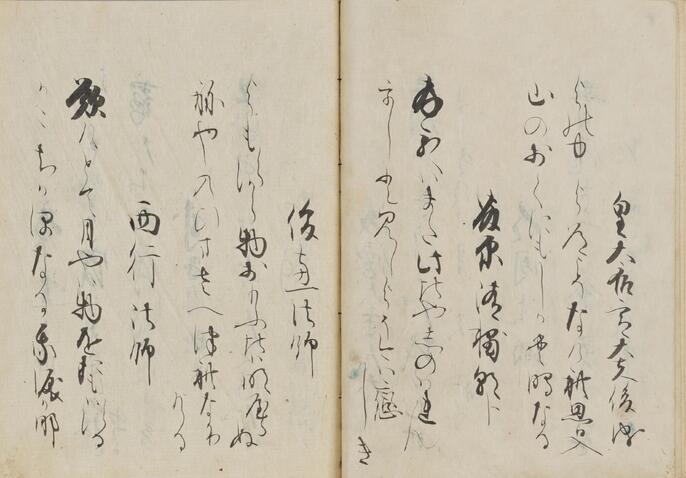 皇太后宮大夫俊成
よの中よみちこそなけれ思入
山のおくにもしかそ鳴なる
藤原清輔朝臣
なからへはまた此比やしのはれん
うしと見しよそ今は恋
しき
俊恵法師
よもすから物おもふ比は明やらぬ
ねやのひまさへつれなかり
ける
西行法師
歎けとて月やは物をおもはする
かこちかほなる我涙哉